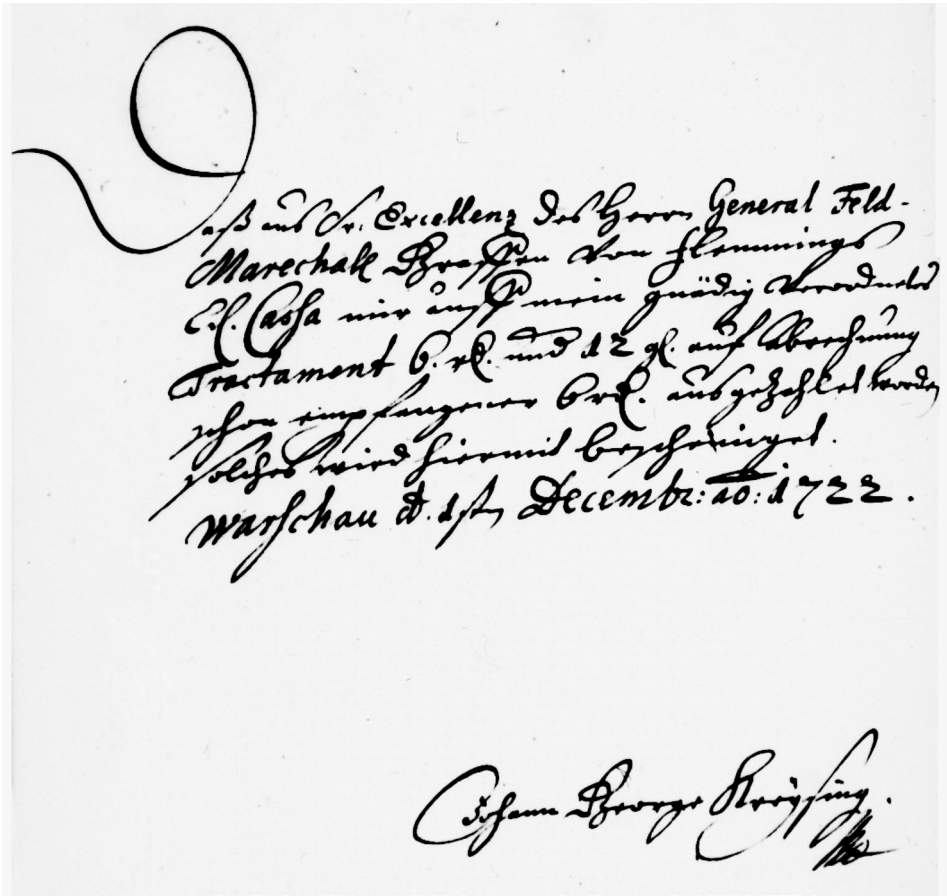 Daß aus Sr. Excellenz des Herrn General Feld-
Marechall Graffen von Flemmings
Cassa mir auff mein gnädig verordnetes
Tractament 6. rl. und 12 gl. auf Abrechnung
schon empfangener 6 rl. ausgezahlet worden
solches wird hiermit bescheiniget.
Warschau d. 1st. Decembr: ao: 1722.
Johann George Kreÿsing.